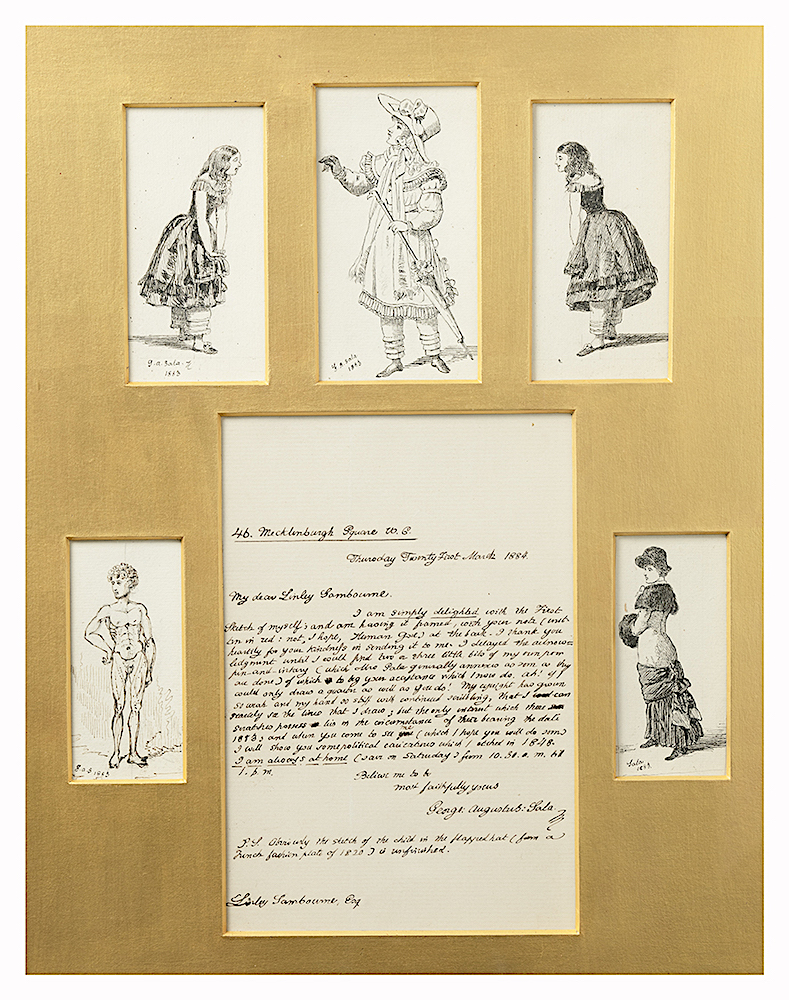 G. A. Sala.
1883
G. A. Sala
1883
46. Mecklenburgh Square W. C.
Thursday Twenty First March 1884.
My dear Linley Sambourne.
I am simply delighted with the First
Sketch of myself; and am having it framed, with your note (
in red: not, I hope, Human Gore) at the back. I thank you
heartily for your kindness in sending it to me. I delayed the acknow-
ledgment until I could find two or three little bits of my own
pen-and-inkery (which Mrs Sala generally annexes as soon as they
are done) of which to beg your acceptance which I now do. Ah! if I
could only draw a quarter as well as you do! My eyesight has grown
so weak and my hand so stiff with continued scribbling, that I can
scarcely see the lines that I draw; but the only interest which these
scratches possess lies in the circumstance of their bearing the date
1883; and when you come to see me (which I hope you will do soon)
I will show you some political caricatures which I etched in 1848.
I am always at home (save on Saturday) from 10.30. a. m. till
1. p. m.
Believe me to be
most faithfully yours
George: Augustus: Sala.
P.S. Obviously the sketch of the child in the flapped hat (from a
French fashion plate of 1820) is unfinished.
Linley Sambourne, Esq
G.A.S 1883
Sala.
1883